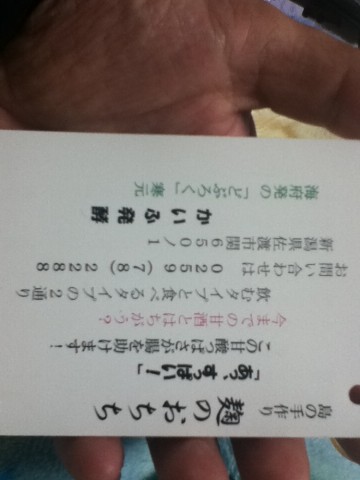 島の手作り
麹のおちち
「あっ、すっぱい！」
この甘酸っぱさが腸を助けます！
今までの甘酒とはちがう？
飲むタイプと食べるタイプの２通り
お問い合わせは ０２５９（７８）２２８８
新潟県佐渡市関６５０ノ１
かいふ発酵
海府発の「どぶろく」寒元